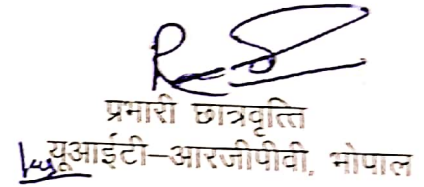 प्रभारी छात्रवृत्ति
यूआईटी–आरजीपीवी, भोपाल